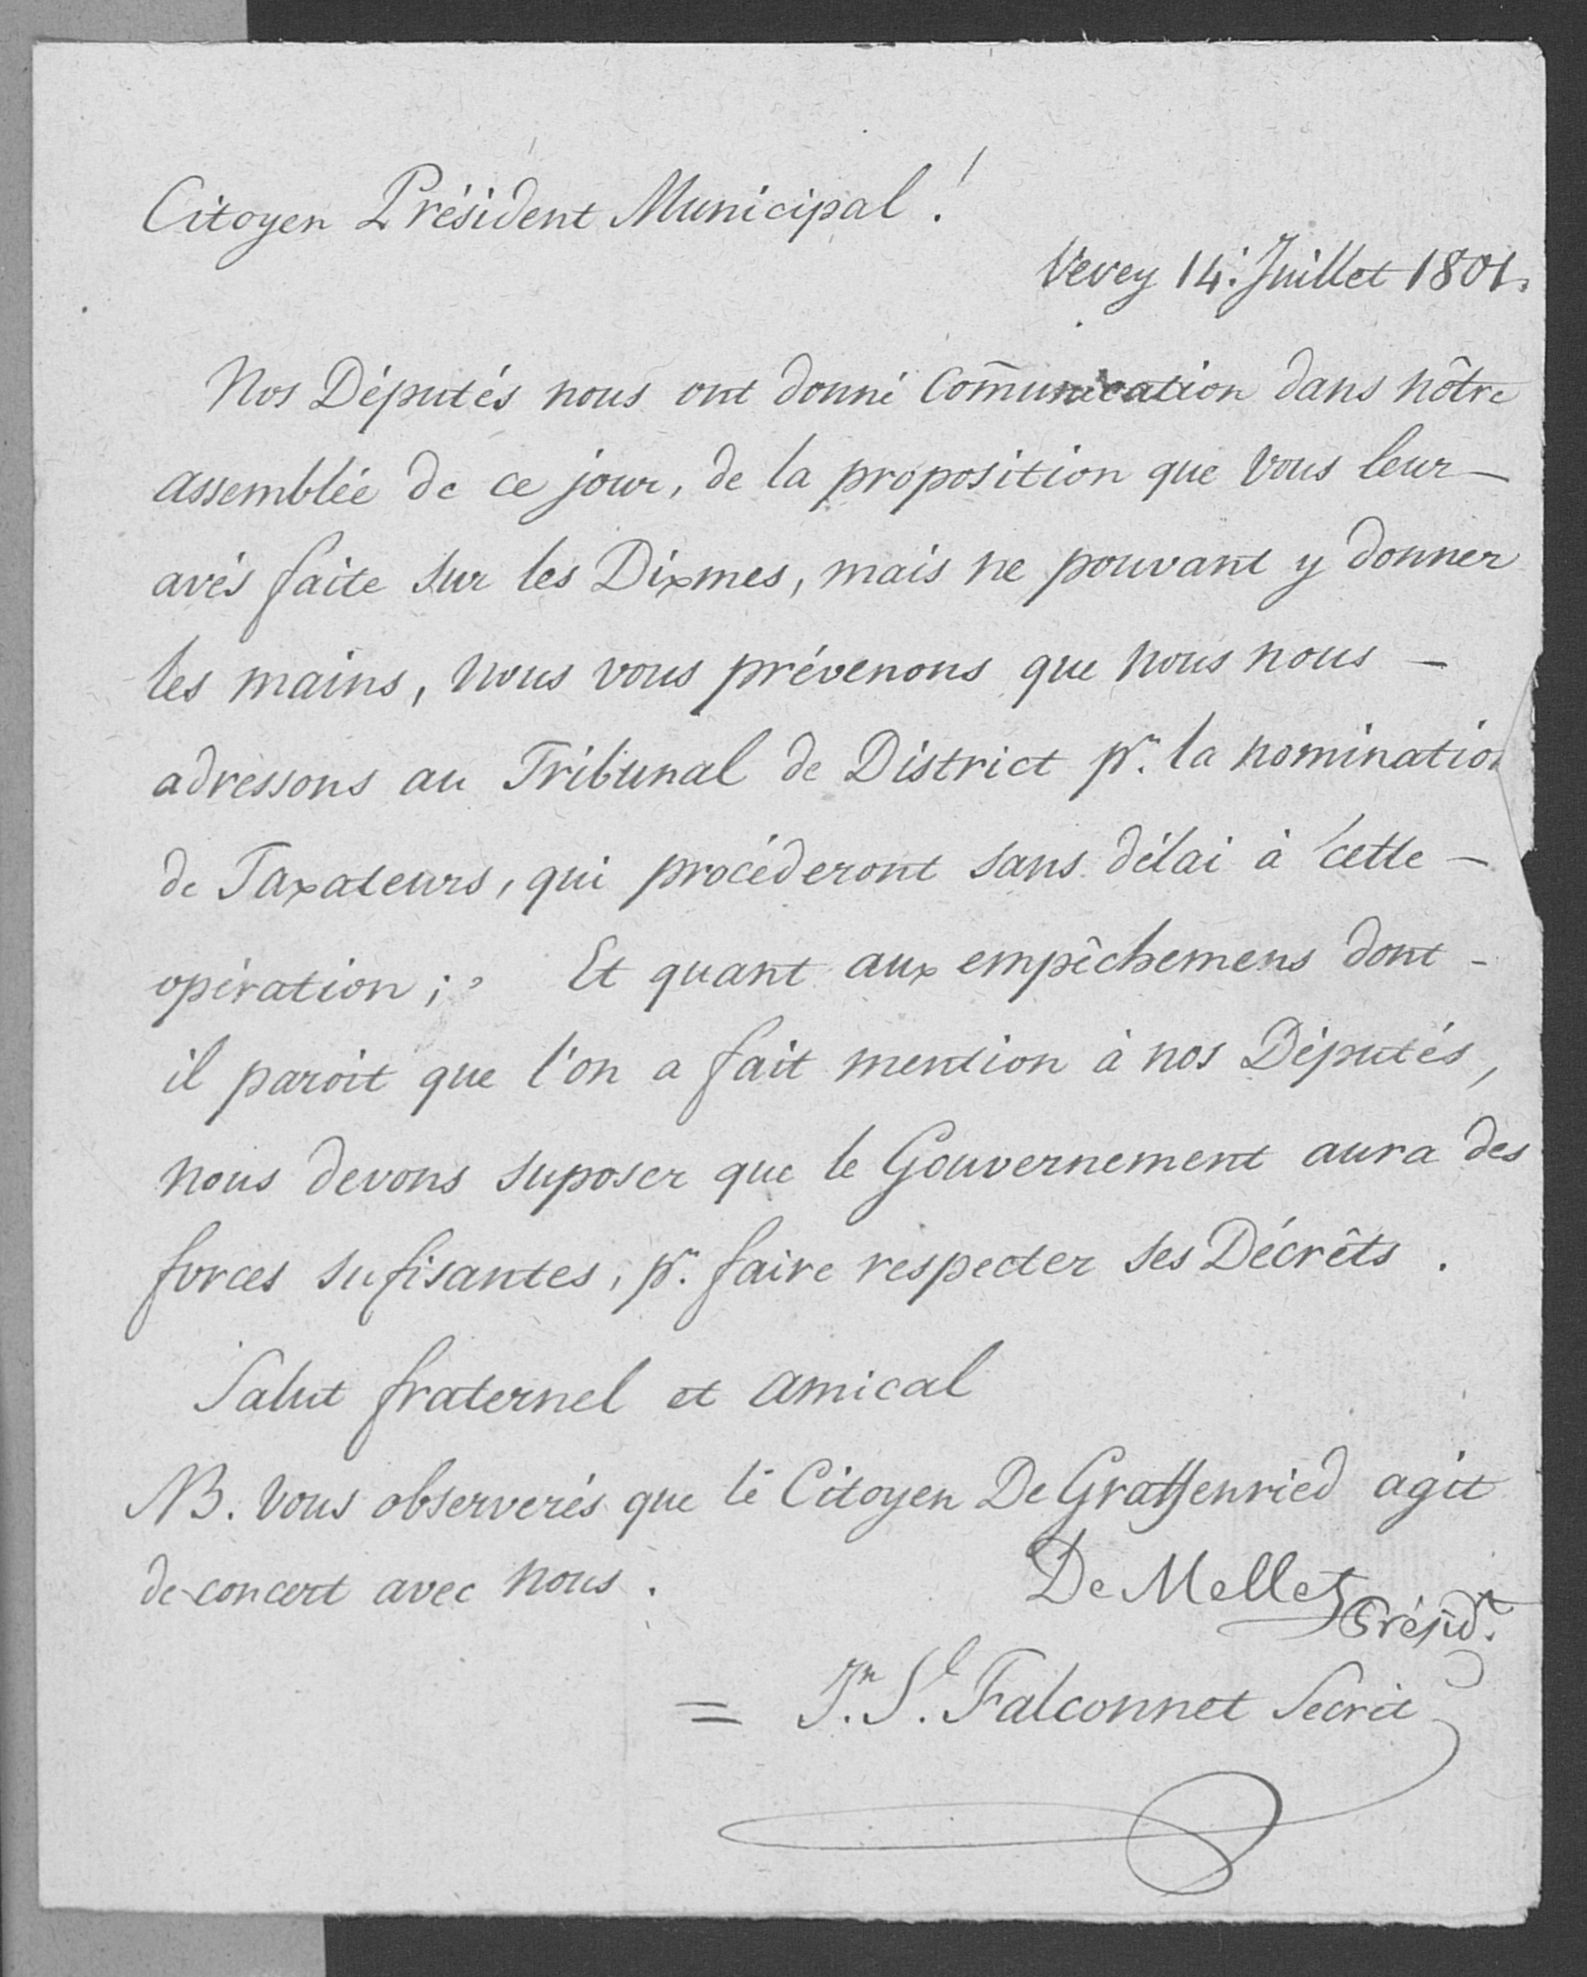 Citoyen Président Municipal !
Vevey 14: Juillet 1801.
Nos Députés nous ont donné Com̄unication dans nôtre
assemblée de ce jour, de la proposition que Vous leur —
avés faite sur les Dixmes, mais ne pouvant y donner
les mains, Nous vous prévenons que nous nous —
adressons au Tribunal de District pr. la nomination
de Taxateurs, qui procéderont sans délai à cette —
opération ; Et quant aux empêchemens dont -
il paroit que l'on a fait mention à nos Députés,
nous devons suposer que le Gouvernement aura des
forces sufisantes, pr. faire respecter ses Décrêts .
Salut fraternel et amical
NB. Vous observerés que le Citoyen De Graffenried agit
de concert avec Nous .
De Mellet Présidt.
= Jn. Sl. Falconnet Secrét